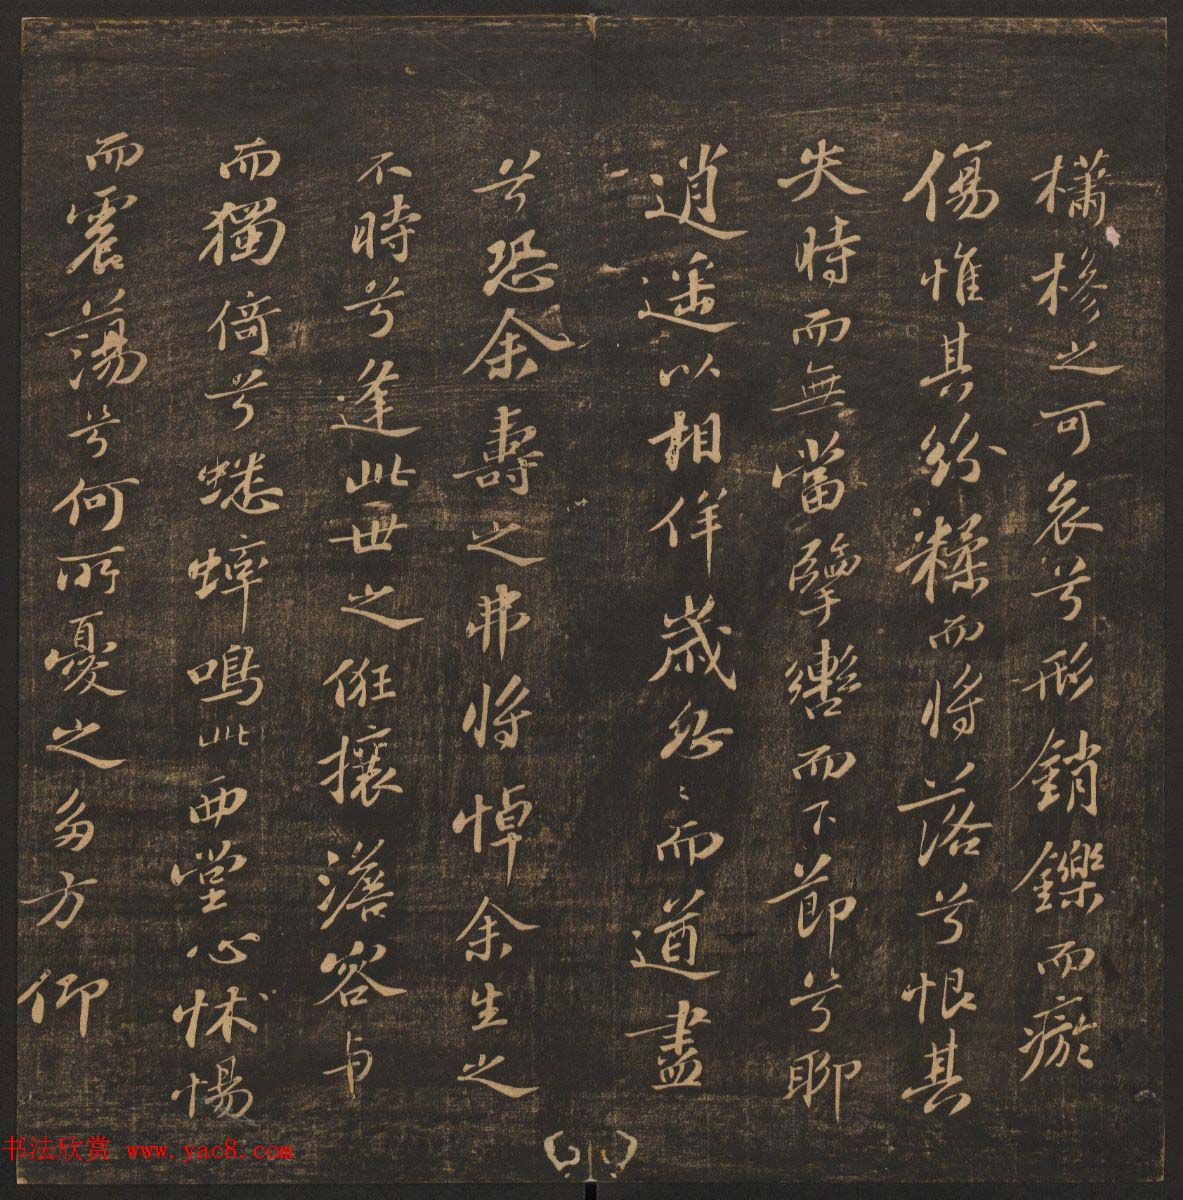 橚槮之可哀兮形銷鑠而瘀
傷惟其紛糅而將落兮恨其
失時而無當擥轡而下節兮聊
逍遥以相佯歲忽〻而遒盡
兮恐余壽之弗將悼余生之
不時兮逢此世之俇攘澹容与
而獨倚兮蟋蟀鳴此西堂心怵惕
而震蕩兮何所憂之多方仰
书法欣赏 www.yac8.com